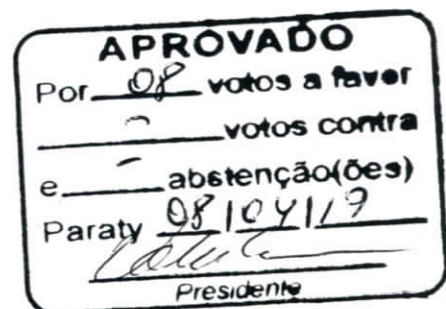 APROVADO
Por 08 votos a favor
- votos contra
e - abstenção(ões)
Paraty 08/04/19
Presidente